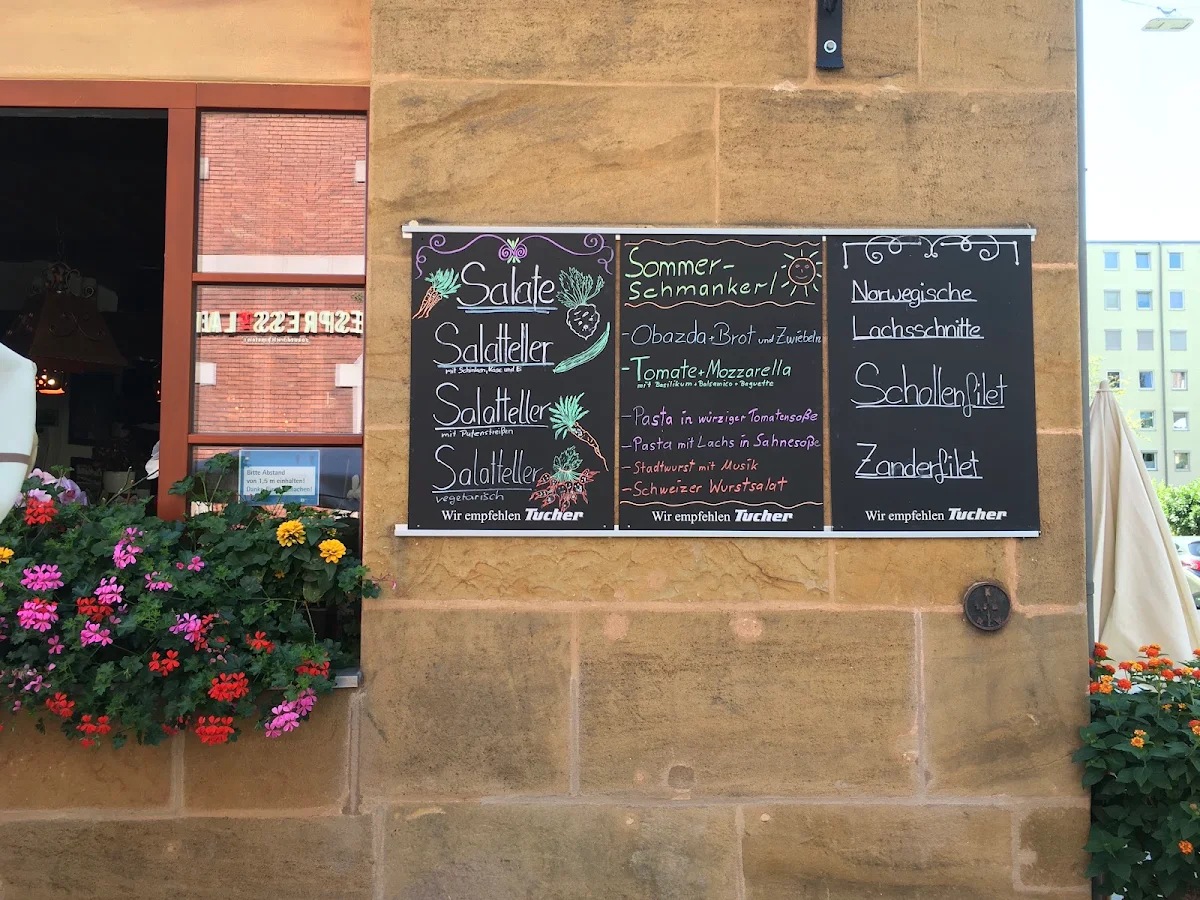 Salate
Salatteller
mit Schinken, Käse und Ei
Salatteller
mit Putenstreifen
Salatteller
vegetarisch
Wir empfehlen Tucher
Sommer-
Schmankerl
- Obazda + Brot und Zwiebeln
- Tomate + Mozzarella
mit Basilikum + Balsamico + Baguette
- Pasta in würziger Tomatensoße
- Pasta mit Lachs in Sahnesoße
- Stadtwurst mit Musik
- Schweizer Wurstsalat
Wir empfehlen Tucher
Norwegische
Lachsschnitte
Schollenfilet
Zanderfilet
Wir empfehlen Tucher
ESPRESSO LAB
Bitte Abstand
von 1,5 m einhalten!